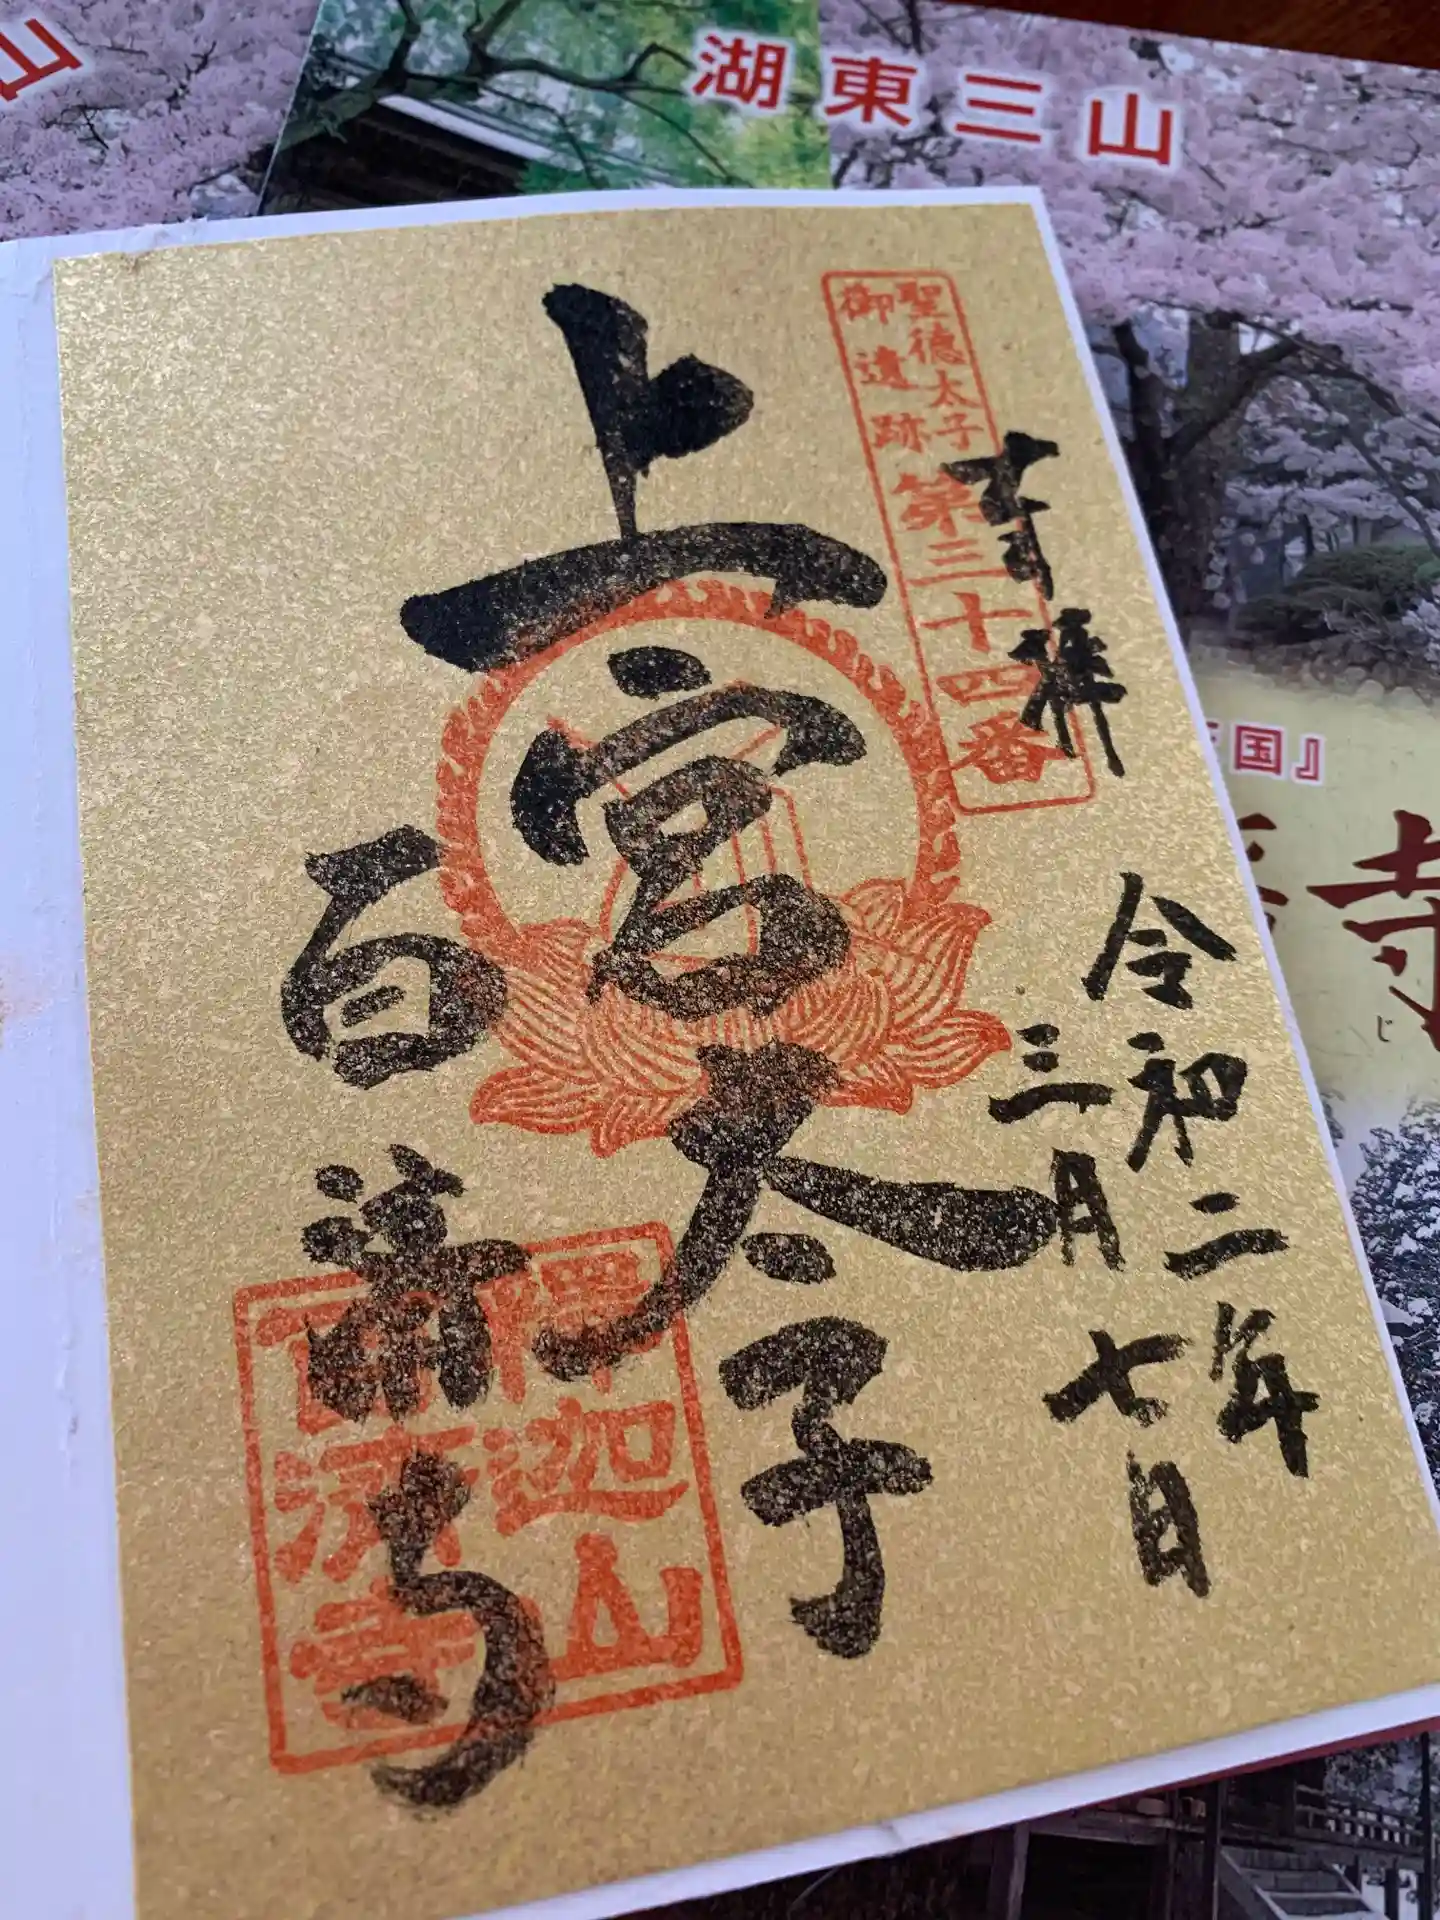 山
湖東三山
聖徳太子
御遺跡
第三十四番
奉拝
令和二年
三月七日
上宮太子
百済寺
釈迦山
百済寺
国』
寺
じ